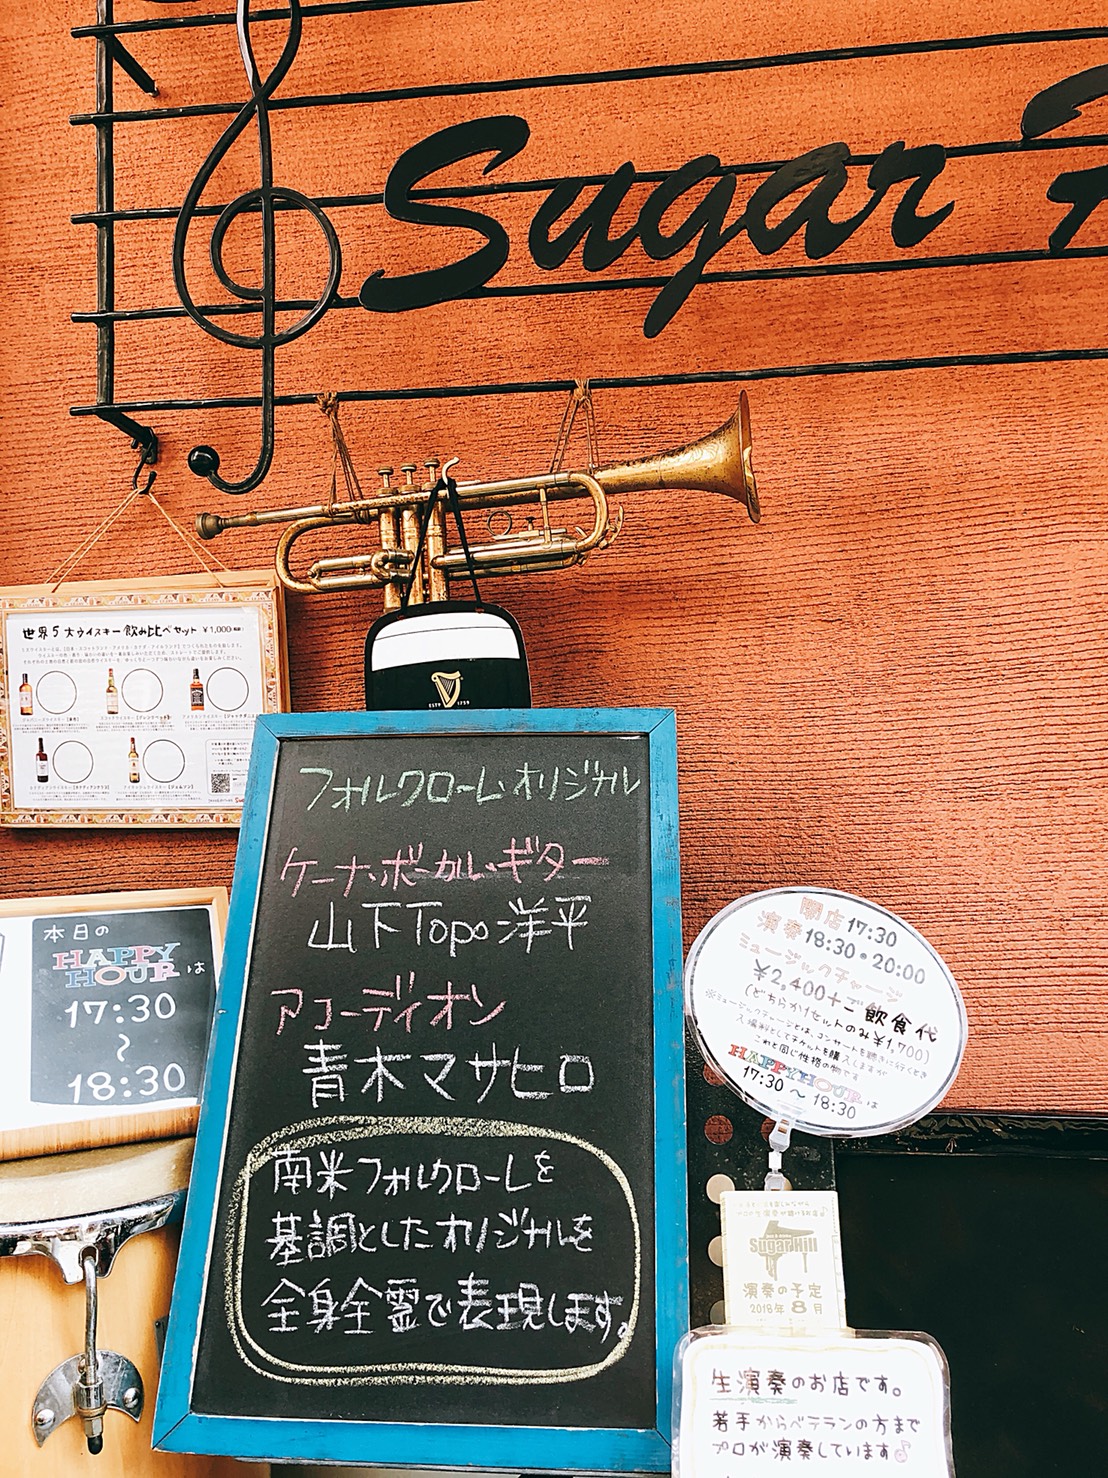 Sugar
世界5大ウイスキー飲み比べセット ¥1,000
ESTD 1759
フォルクローレ・オリジナル
ケーナ・ボーカル・ギター
山下Topo洋平
アコーディオン
青木マサヒロ
南米フォルクローレを
基調としたオリジナルを
全身全霊で表現します。
本日の
HAPPY
HOURは
17:30
〜
18:30
開店17:30
演奏18:30・20:00
ミュージックチャージ
¥2,400+ご飲食代
(どちらか1セットのみ¥1,700)
※ミュージックチャージとは、コンサートを聴きに行くとき
入場料としてチケットを購入しますが
これと同じ性格の物です
HAPPYHOURは
17:30〜18:30
SugarHill
演奏の予定
2018年8月
生演奏のお店です。
若手からベテランの方まで
プロが演奏しています♪